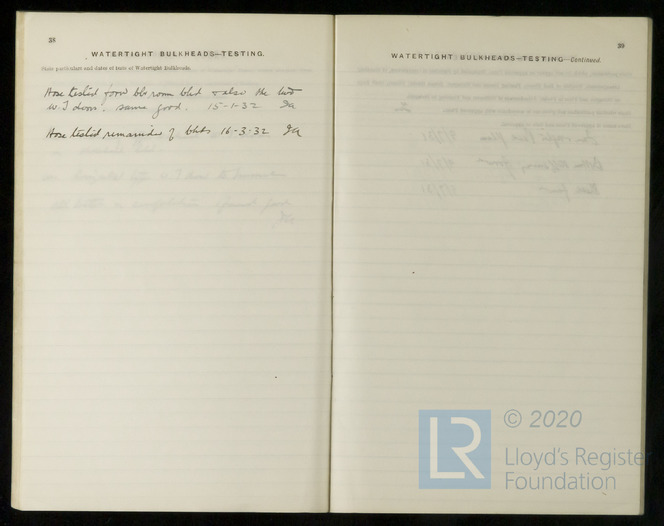 38
WATERTIGHT BULKHEADS—TESTING.
State particulars and dates of tests of Watertight Bulkheads.
Hose tested forw blr room blkd & also the two
W.T doors, same good. 15-1-32
Hose tested remainder of blkds 16-3-32
39
WATERTIGHT BULKHEADS—TESTING—Continued.
LR
© 2020
Lloyd's Register
Foundation